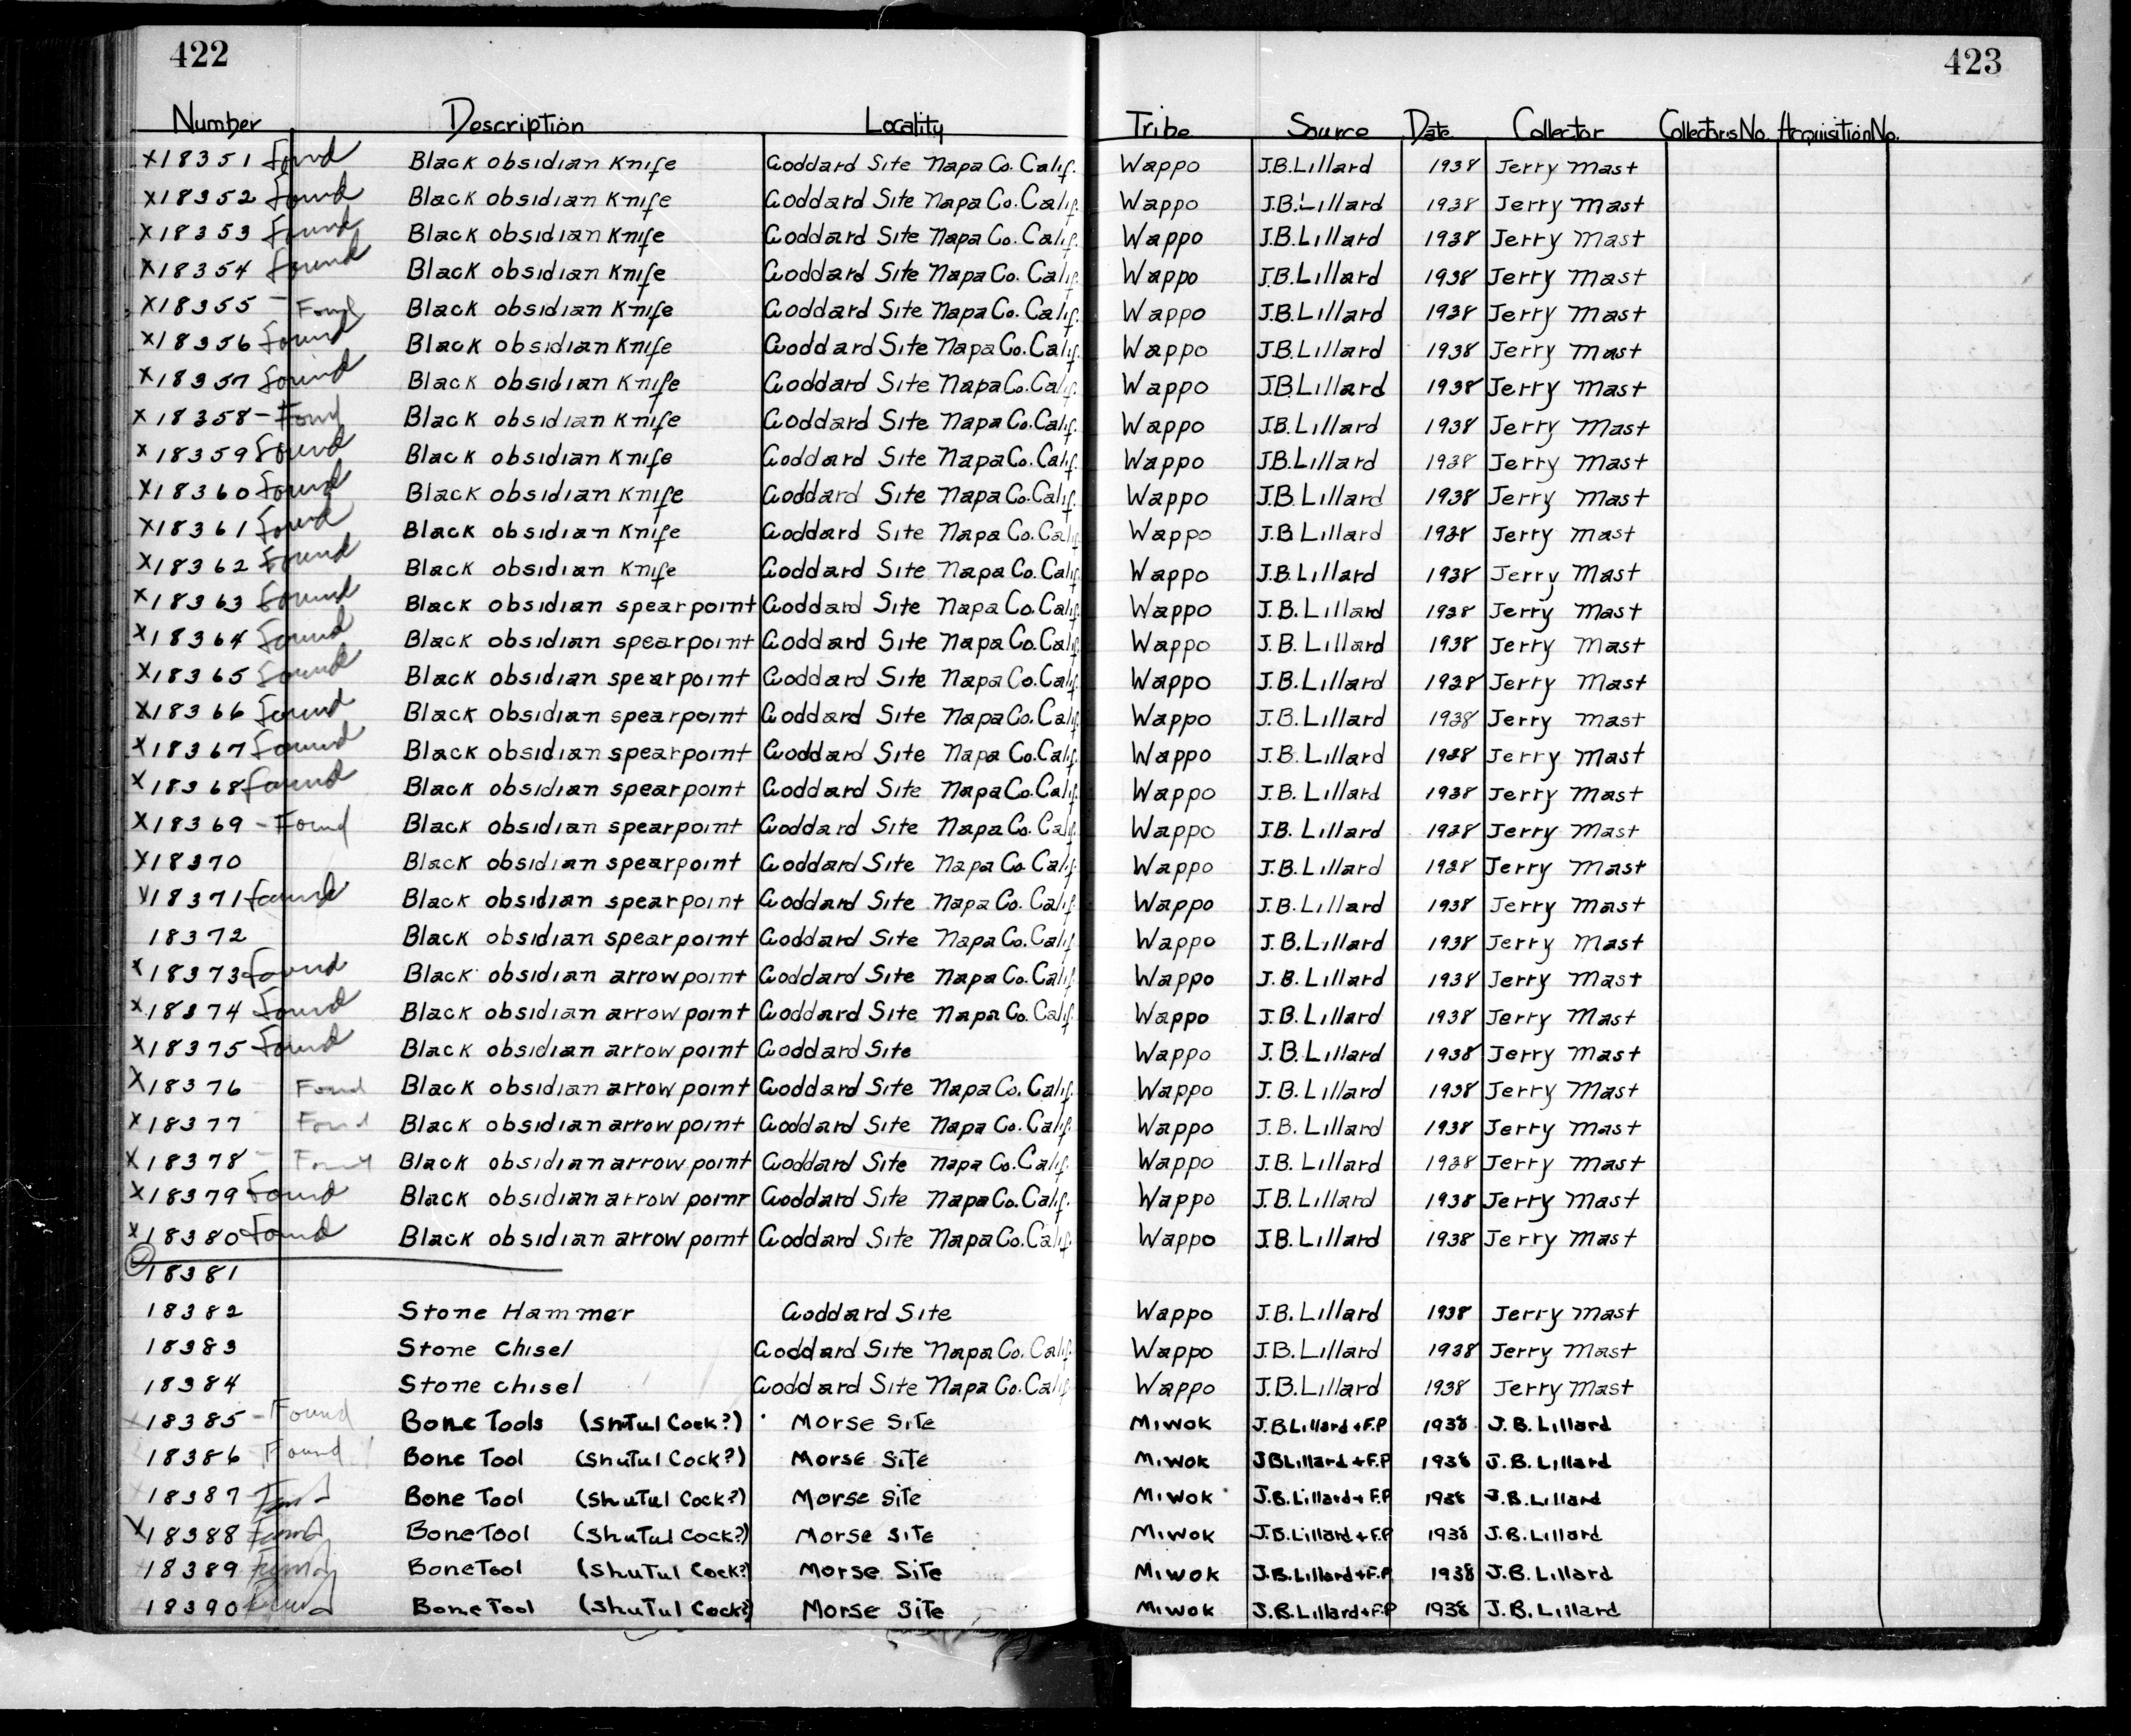 422
423
Number Description Locality Tribe Source Date Collector Collectors No. Acquisition No.
X18351 Found Black obsidian Knife Goddard Site Napa Co. Calif. Wappo J.B. Lillard 1938 Jerry Mast
X18352 Found Black obsidian Knife Goddard Site Napa Co. Calif. Wappo J.B. Lillard 1938 Jerry Mast
X18353 Found Black obsidian Knife Goddard Site Napa Co. Calif. Wappo J.B. Lillard 1938 Jerry Mast
X18354 Found Black obsidian Knife Goddard Site Napa Co. Calif. Wappo J.B. Lillard 1938 Jerry Mast
X18355 - Found Black obsidian Knife Goddard Site Napa Co. Calif. Wappo J.B. Lillard 1938 Jerry Mast
X18356 Found Black obsidian Knife Goddard Site Napa Co. Calif. Wappo J.B. Lillard 1938 Jerry Mast
X18357 Found Black obsidian Knife Goddard Site Napa Co. Calif. Wappo J.B. Lillard 1938 Jerry Mast
X18358 - Found Black obsidian Knife Goddard Site Napa Co. Calif. Wappo J.B. Lillard 1938 Jerry Mast
X18359 Found Black obsidian Knife Goddard Site Napa Co. Calif. Wappo J.B. Lillard 1938 Jerry Mast
X18360 Found Black obsidian Knife Goddard Site Napa Co. Calif. Wappo J.B. Lillard 1938 Jerry Mast
X18361 Found Black obsidian Knife Goddard Site Napa Co. Calif Wappo J.B. Lillard 1938 Jerry Mast
X18362 Found Black obsidian Knife Goddard Site Napa Co. Calif. Wappo J.B. Lillard 1938 Jerry Mast
X18363 Found Black obsidian spearpoint Goddard Site Napa Co. Calif. Wappo J.B. Lillard 1938 Jerry Mast
X18364 Found Black obsidian spearpoint Goddard Site Napa Co. Calif. Wappo J.B. Lillard 1938 Jerry Mast
X18365 Found Black obsidian spearpoint Goddard Site Napa Co. Calif. Wappo J.B. Lillard 1938 Jerry Mast
X18366 Found Black obsidian spearpoint Goddard Site Napa Co. Calif Wappo J.B. Lillard 1938 Jerry Mast
X18367 Found Black obsidian spearpoint Goddard Site Napa Co. Calif. Wappo J.B. Lillard 1938 Jerry Mast
X18368 Found Black obsidian spearpoint Goddard Site Napa Co. Calif. Wappo J.B. Lillard 1938 Jerry Mast
X18369 - Found Black obsidian spearpoint Goddard Site Napa Co. Calif Wappo J.B. Lillard 1938 Jerry Mast
X18370 Black obsidian spearpoint Goddard Site Napa Co. Calif. Wappo J.B. Lillard 1938 Jerry Mast
X18371 Found Black obsidian spearpoint Goddard Site Napa Co. Calif. Wappo J.B. Lillard 1938 Jerry Mast
18372 Black obsidian spearpoint Goddard Site Napa Co. Calif Wappo J.B. Lillard 1938 Jerry Mast
X18373 Found Black obsidian arrow point Goddard Site Napa Co. Calif. Wappo J.B. Lillard 1938 Jerry Mast
X18374 Found Black obsidian arrow point Goddard Site Napa Co. Calif. Wappo J.B. Lillard 1938 Jerry Mast
X18375 Found Black obsidian arrow point Goddard Site Wappo J.B. Lillard 1938 Jerry Mast
X18376 Found Black obsidian arrow point Goddard Site Napa Co. Calif. Wappo J.B. Lillard 1938 Jerry Mast
X18377 Found Black obsidian arrow point Goddard Site Napa Co. Calif. Wappo J.B. Lillard 1938 Jerry Mast
X18378 - Found Black obsidian arrow point Goddard Site Napa Co. Calif. Wappo J.B. Lillard 1938 Jerry Mast
X18379 Found Black obsidian arrow point Goddard Site Napa Co. Calif. Wappo J.B. Lillard 1938 Jerry Mast
X18380 Found Black obsidian arrow point Goddard Site Napa Co. Calif. Wappo J.B. Lillard 1938 Jerry Mast
18381
18382 Stone Hammer Goddard Site Wappo J.B. Lillard 1938 Jerry Mast
18383 Stone Chisel Goddard Site Napa Co. Calif. Wappo J.B. Lillard 1938 Jerry Mast
18384 Stone chisel Goddard Site Napa Co. Calif Wappo J.B. Lillard 1938 Jerry Mast
18385 - Found Bone Tools (Shutul Cock?) Morse Site Miwok J.B. Lillard + F.P 1938 J.B. Lillard
18386 Found Bone Tool (Shutul Cock?) Morse Site Miwok J.B. Lillard + F.P 1938 J.B. Lillard
18387 Found Bone Tool (Shutul Cock?) Morse Site Miwok J.B. Lillard + F.P 1938 J.B. Lillard
X18388 Found Bone Tool (Shutul Cock?) Morse Site Miwok J.B. Lillard + F.P 1938 J.B. Lillard
18389 Found Bone Tool (Shutul Cock?) Morse Site Miwok J.B. Lillard + F.P 1938 J.B. Lillard
18390 Found Bone Tool (Shutul Cock?) Morse Site Miwok J.B. Lillard + F.P 1938 J.B. Lillard